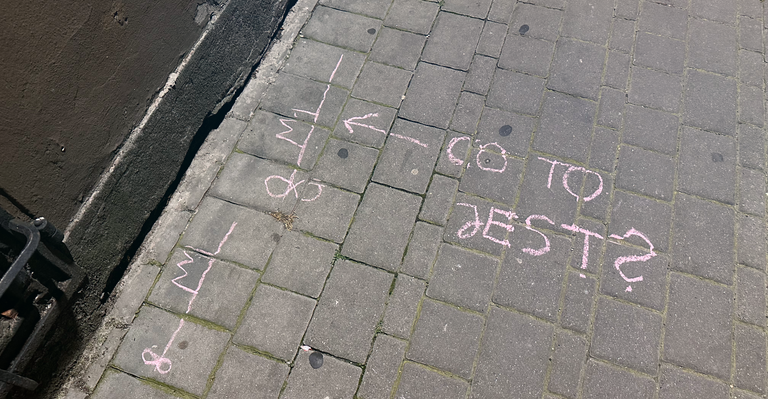 CO TO
JEST?